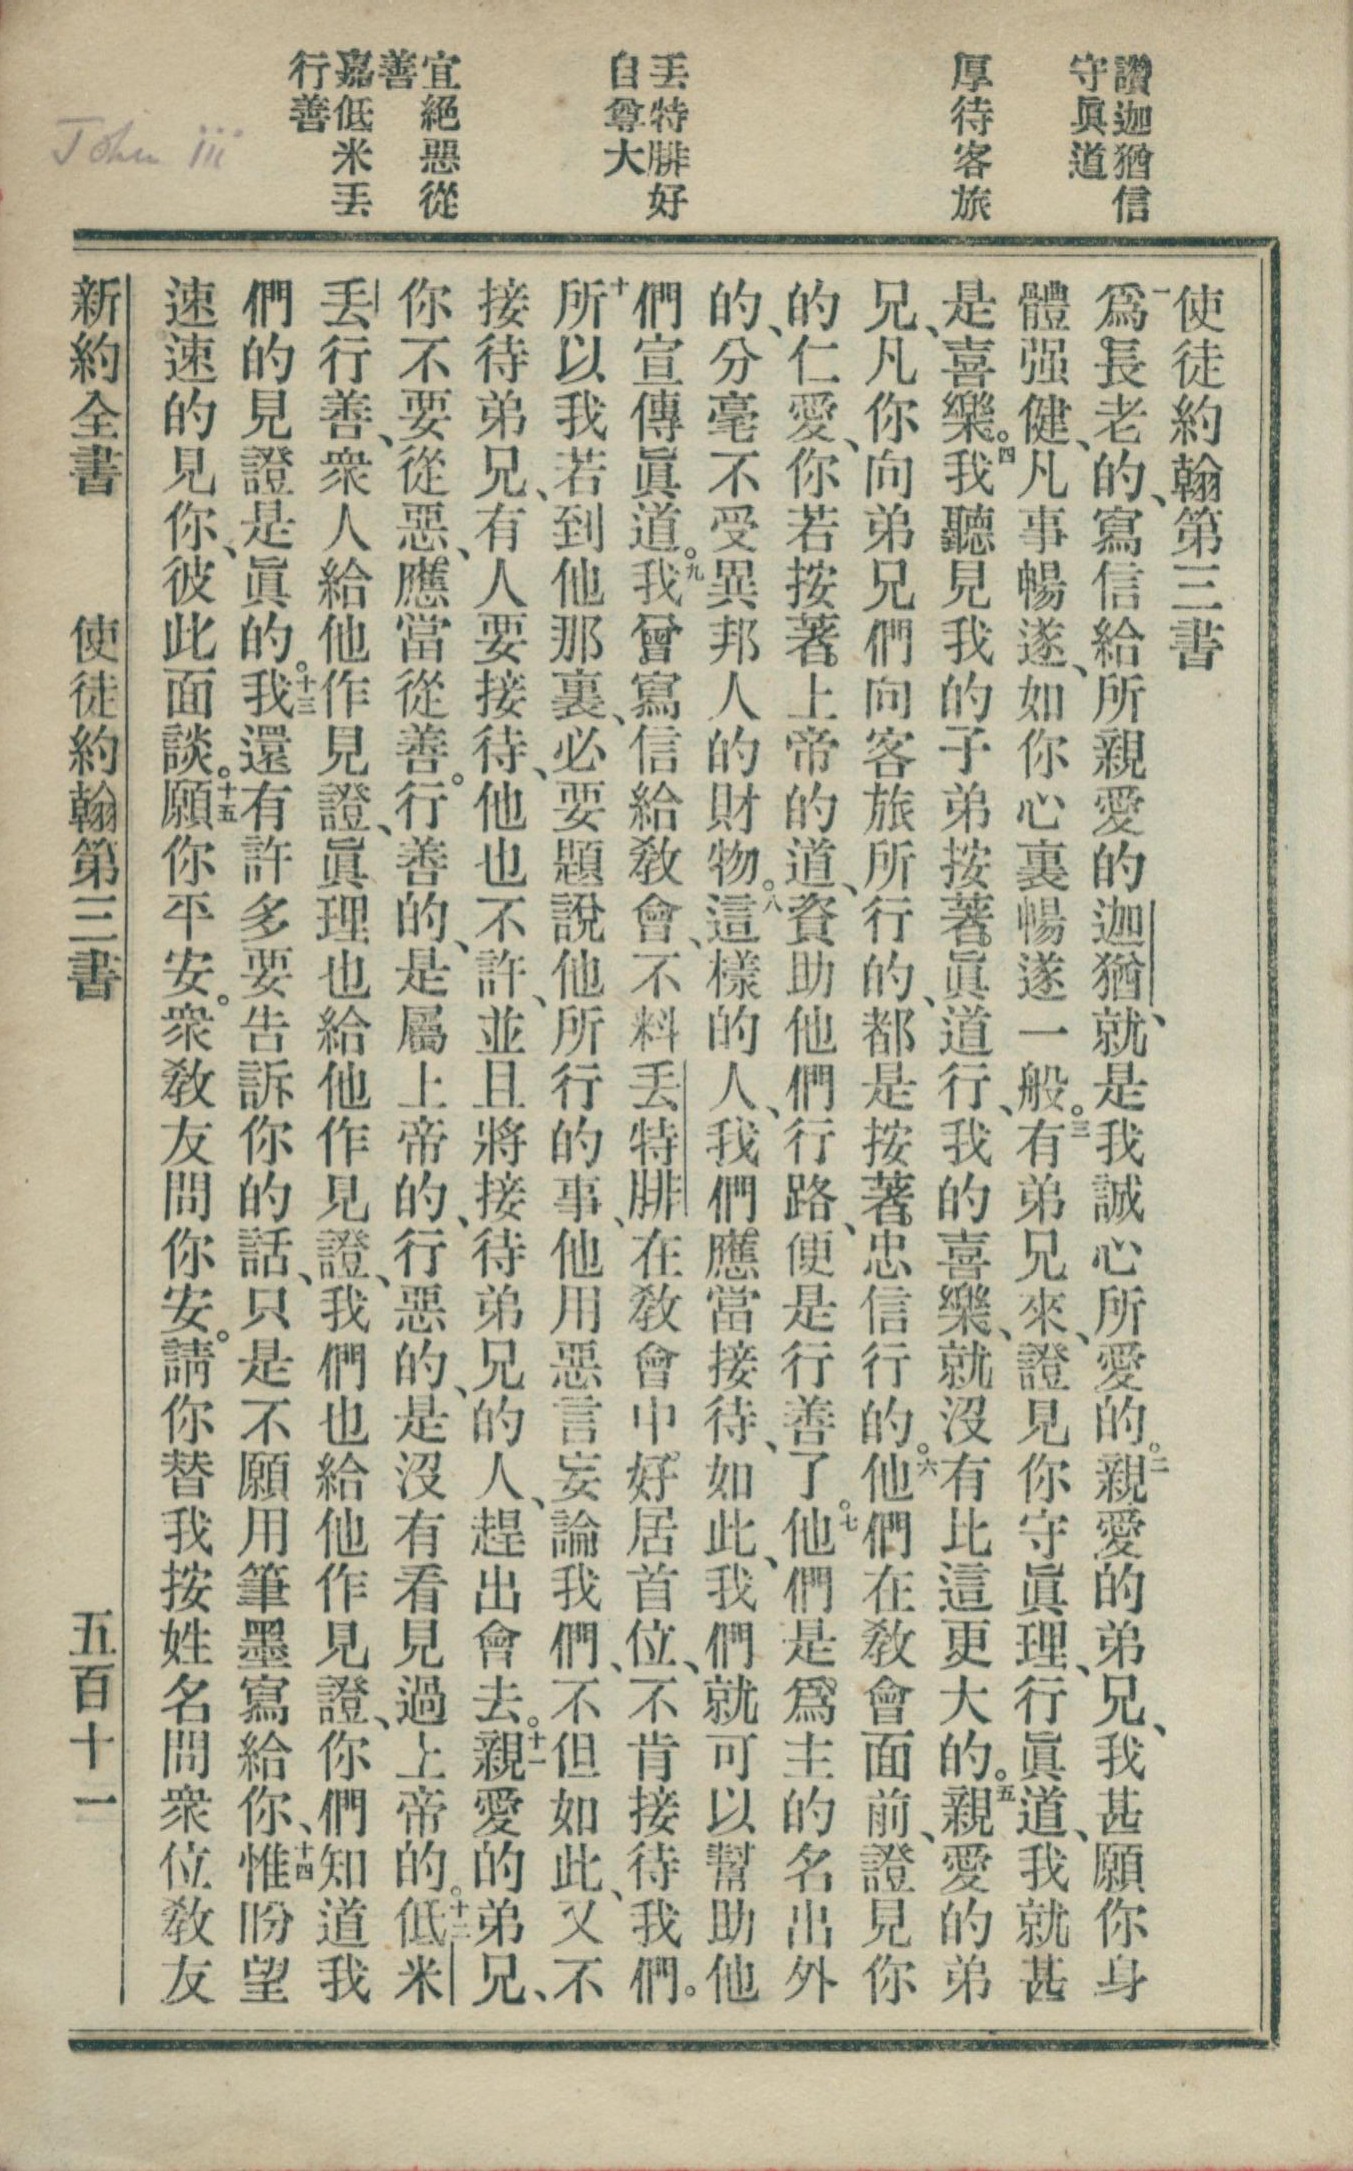 讚迦猶信
守眞道
厚待客旅
丟特腓好
自尊大
宜絕惡從
善
嘉低米丟
行善
John iii
使徒約翰第三書
一爲長老的、寫信給所親愛的迦猶、就是我誠心所愛的。二親愛的弟兄、我甚願你身
體强健、凡事暢遂、如你心裏暢遂一般。三有弟兄來、證見你守眞理、行眞道、我就甚
是喜樂。四我聽見我的子弟按著眞道行、我的喜樂、就沒有比這更大的。五親愛的弟
兄、凡你向弟兄們向客旅所行的、都是按著忠信行的。六他們在敎會面前、證見你
的仁愛、你若按著上帝的道、資助他們行路、便是行善了。七他們是爲主的名出外
的、分毫不受異邦人的財物。八這樣的人、我們應當接待、如此、我們就可以幫助他
們宣傳眞道。九我曾寫信給敎會、不料丟特腓在敎會中好居首位、不肯接待我們。
十所以我若到他那裏、必要題說他所行的事、他用惡言妄論我們、不但如此、又不
接待弟兄、有人要接待、他也不許、並且將接待弟兄的人、趕出會去。十一親愛的弟兄、
你不要從惡、應當從善。行善的、是屬上帝的、行惡的、是沒有看見過上帝的。十二低米
丟行善、衆人給他作見證、眞理也給他作見證、我們也給他作見證、你們知道我
們的見證是眞的。十三我還有許多要告訴你的話、只是不願用筆墨寫給你、十四惟盼望
速速的見你、彼此面談。十五願你平安。衆敎友問你安。請你替我按姓名問衆位敎友
新約全書 使徒約翰第三書 五百十一